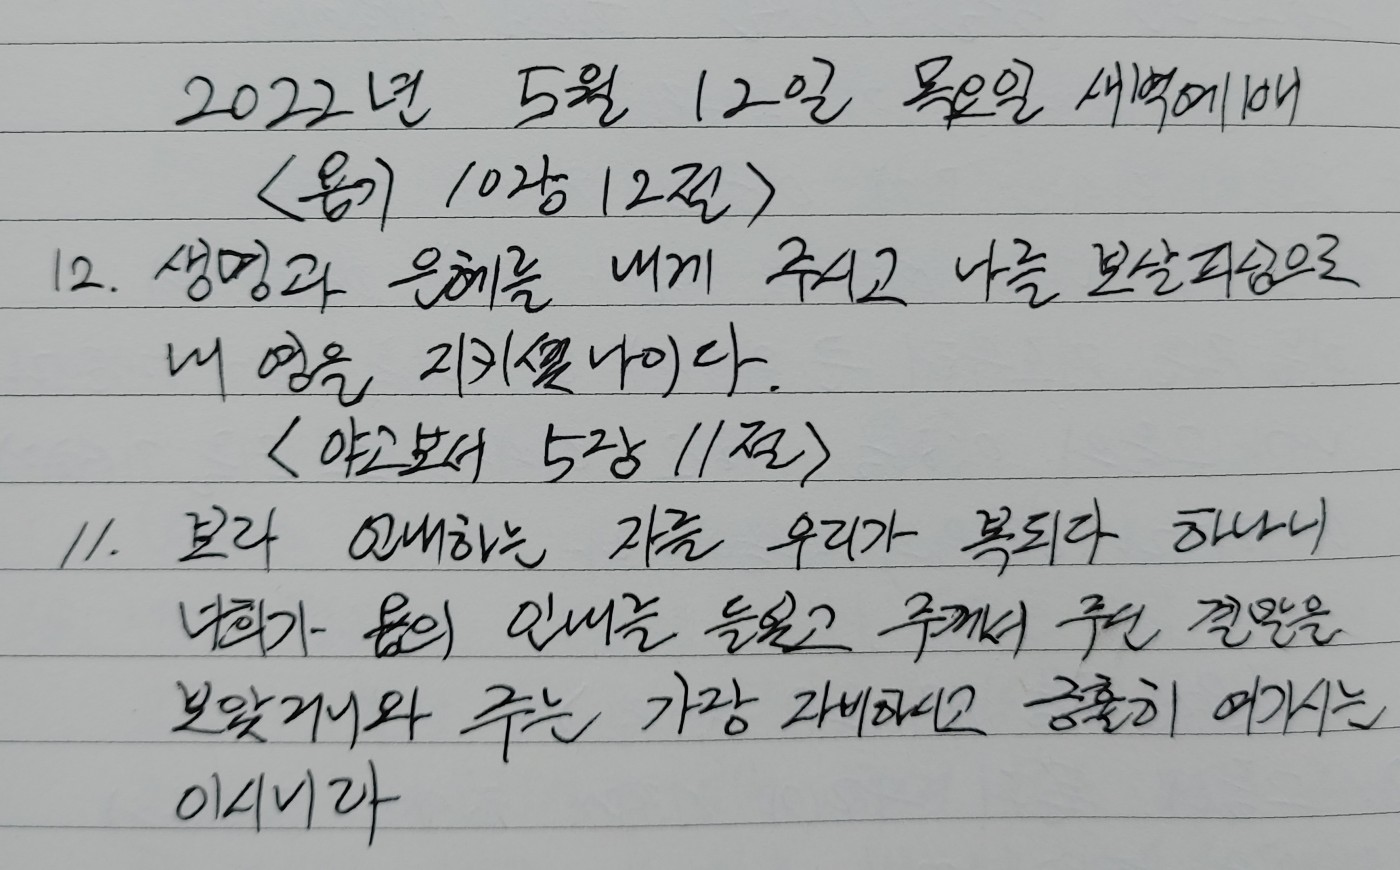 2022년 5월 12일 목요일 새벽예배
<욥기 10장 12절>
12. 생명과 은혜를 내게 주시고 나를 보살피심으로
내 영을 지키셨나이다.
<야고보서 5장 11절>
11. 보라 인내하는 자를 우리가 복되다 하나니
너희가 욥의 인내를 들었고 주께서 주신 결말을
보았거니와 주는 가장 자비하시고 긍휼히 여기시는
이시니라